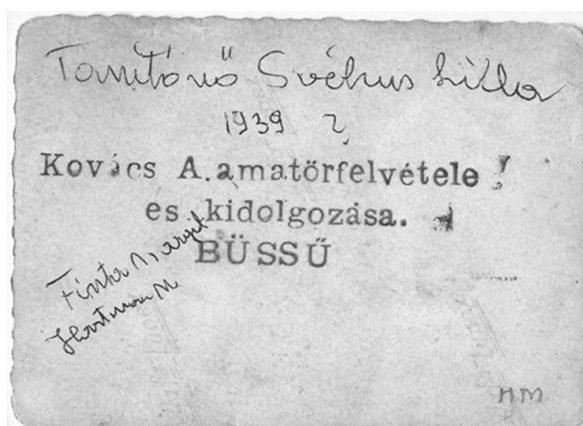 Tanítónő Svéhus
1939 ?
Kovács A. amatörfelvétele !
es kidolgozása.
BÜSSŰ
Finta Margit
Hartman M
HM